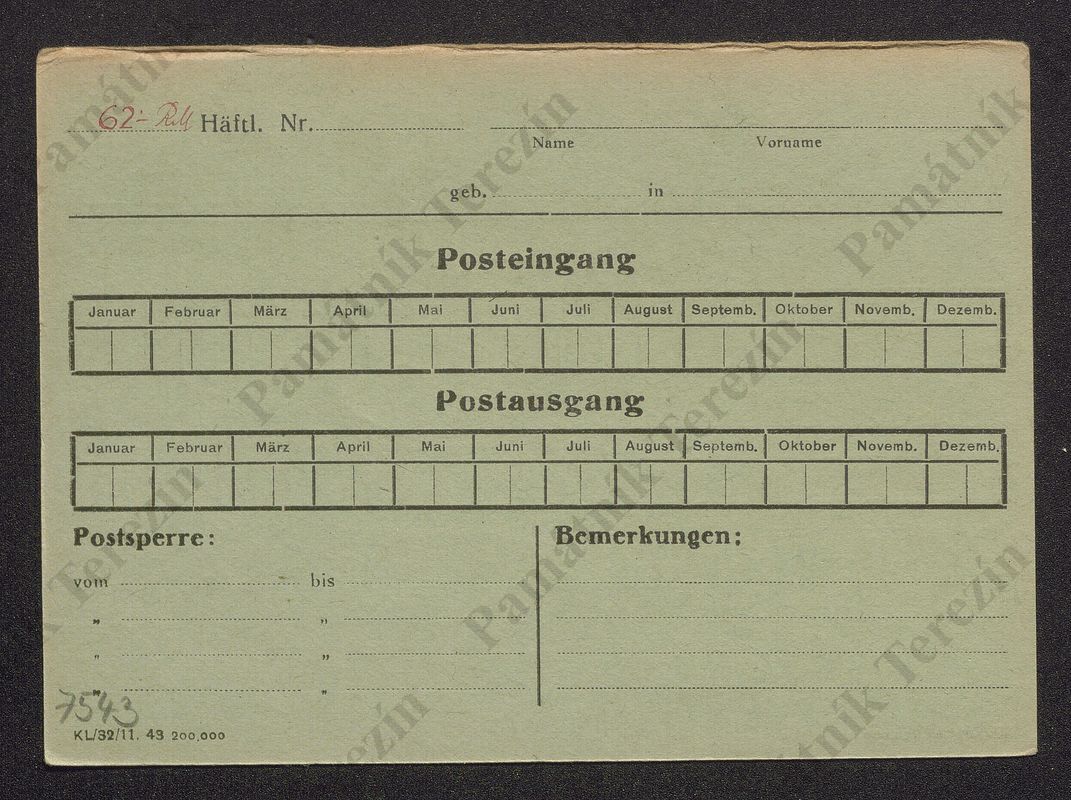 62- Häftl. Nr.
Name Vorname
geb. in
Posteingang
Januar Februar März April Mai Juni Juli August Septemb. Oktober Novemb. Dezemb.
Postausgang
Januar Februar März April Mai Juni Juli August Septemb. Oktober Novemb. Dezemb.
Postsperre: Bemerkungen:
vom bis
" "
" "
" "
7543
KL/32/11. 43 200,000
Památník Terezín